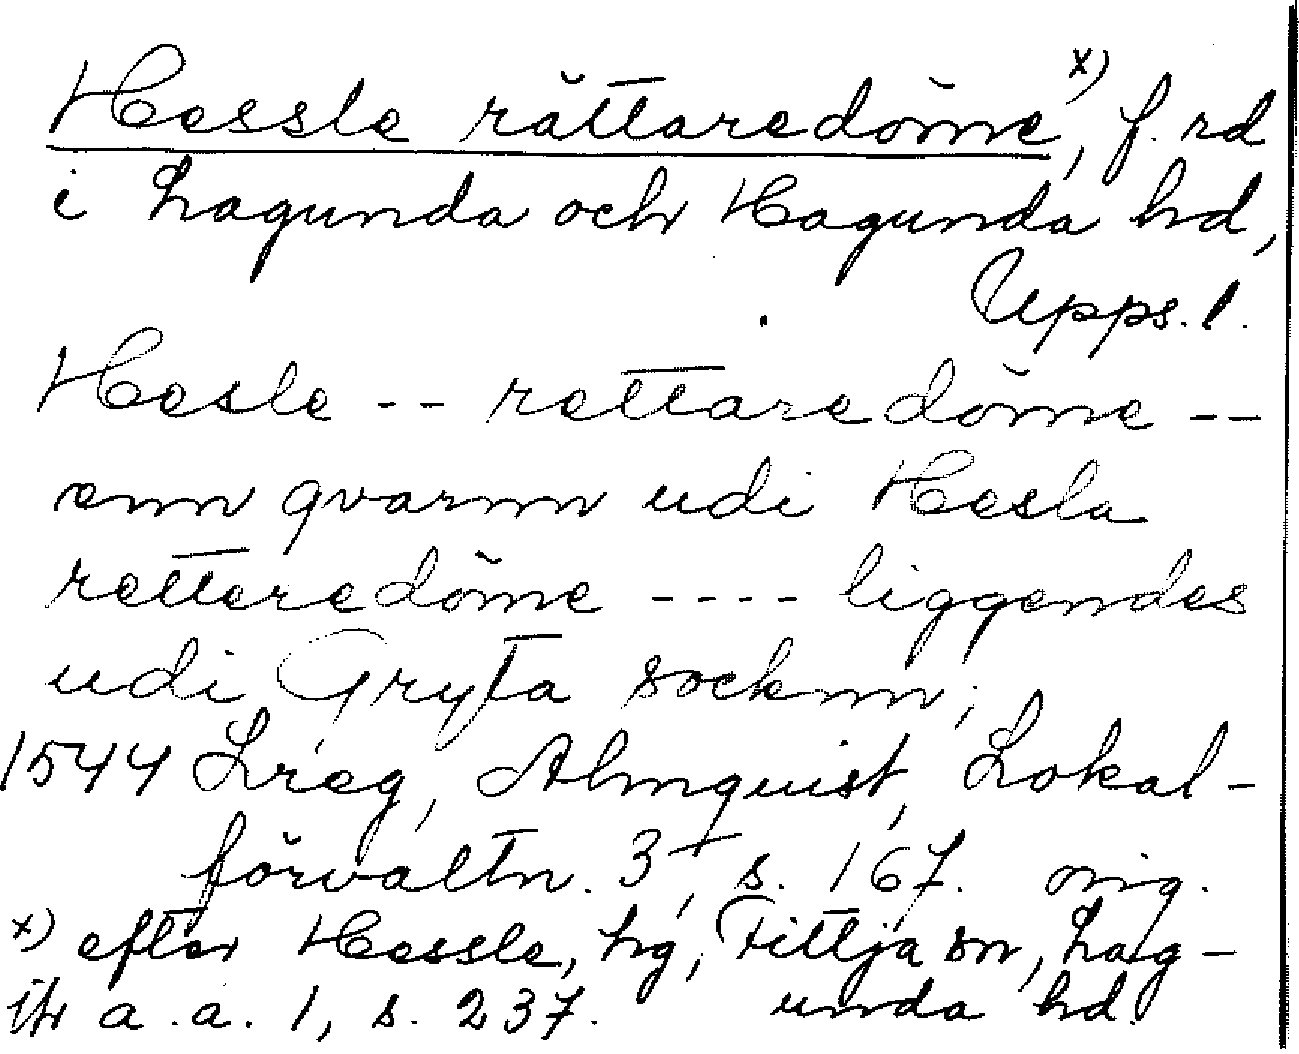 Hessle rättaredöme, x) f. rd
i Lagunda och Hagunda hd,
Upps. l.
Hesle -- rettaredöme --
enn qvarnn udi Hesla
retteredöme ---- liggendes
udi Gryta socknn;
1544 Lreg, Almquist, Lokal-
förvaltn. 3, s. 167. orig.
x) efter Hessle, hg, Fittja sn, Lag-
unda hd.
a. a. 1, s. 237.